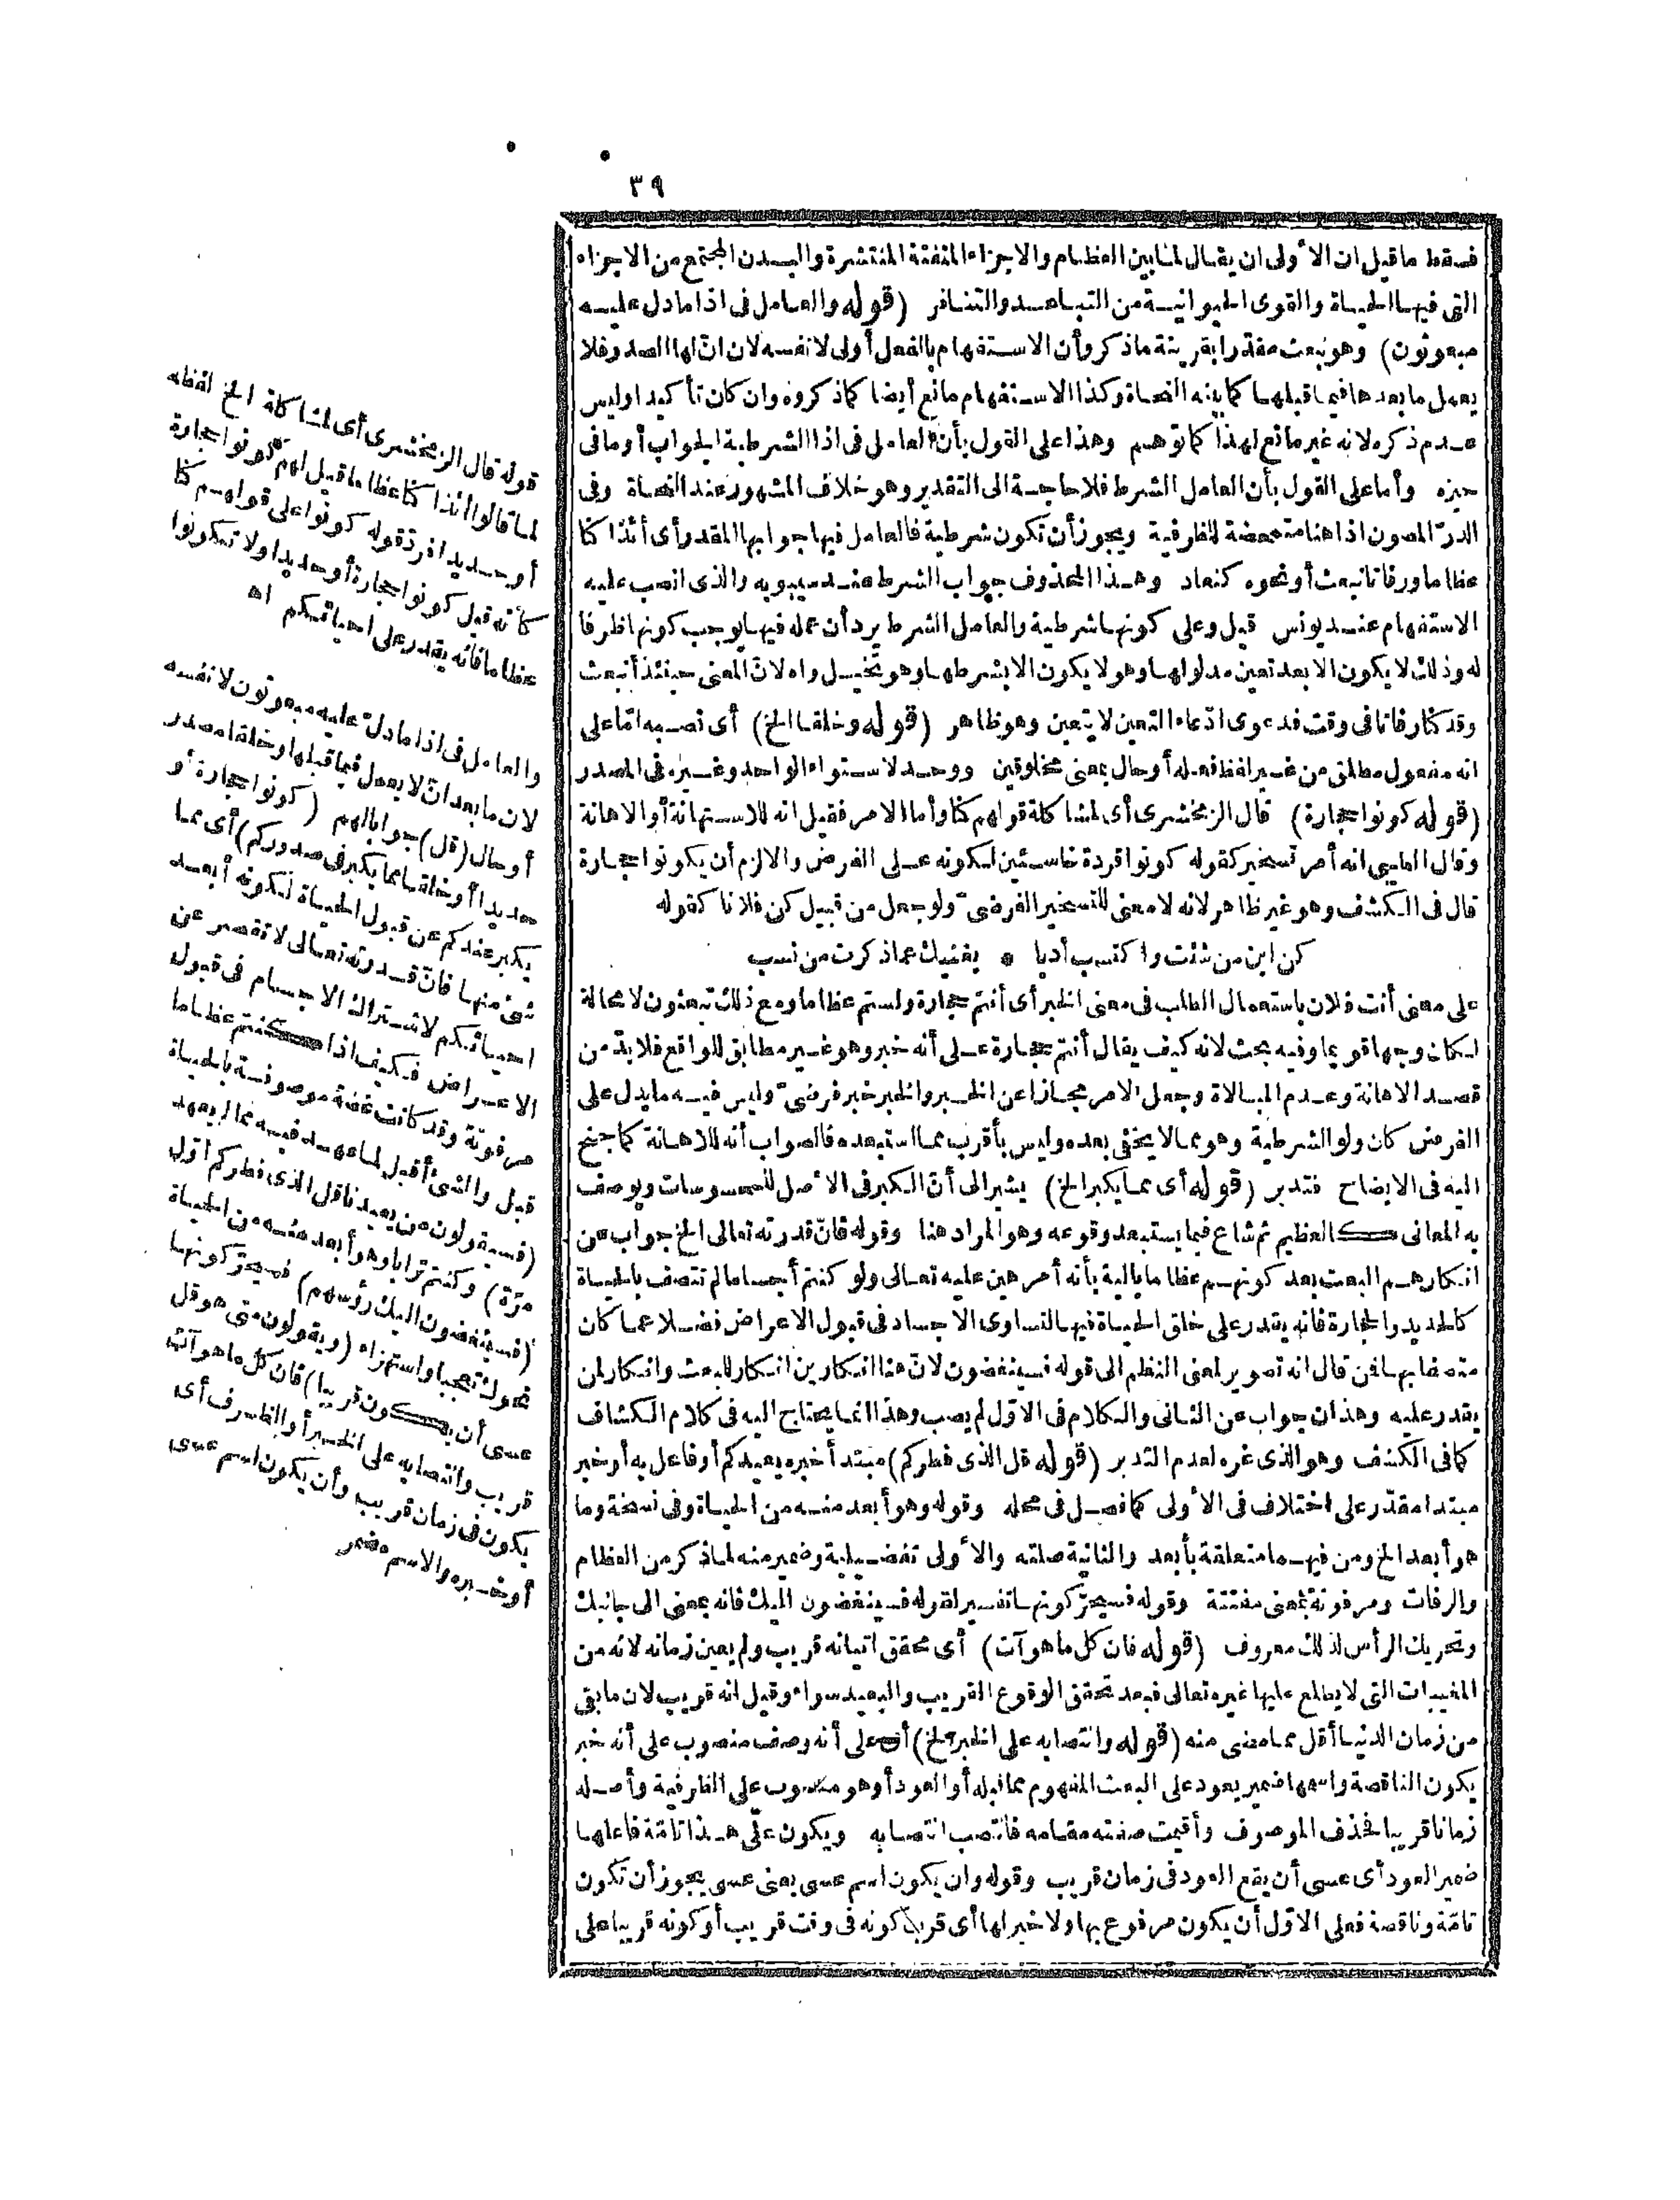 ٣٩
فسقط ما قيل ان الأولى ان يقال لما بين العظام والاجزاء المتفتتة المنتشرة والبدن المجتمع من الاجزاء
التى فيها الحياة والقوى الحيوانية من التباعد والتنافر (قوله والعامل فى اذا مادل عليه
مبعوثون) وهو نبعث مقدرا بقرينة ماذكر وأن الاستفهام بالفعل أولى لا نفسه لان انّ لها الصدر فلا
يعمل مابعدها فيما قبلها كما بينه النحاة وكذا الاستفهام مانع أيضا كما ذكروه وان كان تأكيدا وليس
عدم ذكره لانه غير مانع لهذا كما توهم وهذا على القول بأن العامل فى اذا الشرطية الجواب أو مافى
حيزه وأما على القول بأن العامل الشرط فلا حاجة الى التقدير وهو خلاف المشهور عند النحاة وفى
الدرّ المصون اذا هنا متمحضة للظرفية ويجوز أن تكون شرطية فالعامل فيها جوابها المقدر أى أئذا كنا
عظاما ورفاتا نبعث أو نحوه كنعاد وهذا المحذوف جواب الشرط عند سيبويه والذى انصب عليه
الاستفهام عند يونس قيل وعلى كونها شرطية والعامل الشرط يرد أن عمله فيها يوجب كونها ظرفا
له وذلك لا يكون الا بعد تعين مدلولها وهو لا يكون الا بشرطها وهو تخيل واه لان المعنى حينئذ أنبعث
وقد كنا رفاتا فى وقت فدعوى ادّعاء التعين لا يتعين وهو ظاهر (قوله وخلقا الخ) أى نصبه امّا على
انه مفعول مطلق من غير لفظ فعله أو حال بمعنى مخلوقين ووحد لاستواء الواحد وغيره فى المصدر
(قوله كونوا حجارة) قال الزمخشرى أى لمشاكلة قولهم كنا وأما الامر فقيل انه للاستهانة أو الاهانة
وقال الطيبى انه أمر تسخير كقوله كونوا قردة خاسئين لكونه على الفرض والالزم أن يكونوا حجارة
قال فى الكشف وهو غير ظاهر لانه لا معنى للتسخير الفرضىّ ولو جعل من قبيل كن فلانا كقوله
كن ابن من شئت واكتسب أدبا * يغنيك عما ذكرت من نسب
على معنى أنت فلان باستعمال الطلب فى معنى الخبر أى أنتم حجارة ولستم عظاما ومع ذلك تبعثون لا محالة
لكان وجها قويما وفيه بحث لانه كيف يقال أنتم حجارة على أنه خبر وهو غير مطابق للواقع فلا بدّ من
قصد الاهانة وعدم المبالاة وجعل الامر مجازا عن الخبر والخبر خبر فرضىّ وليس فيه مايدل على
الفرض كان ولو الشرطية وهو مما لا يخفى بعده وليس بأقرب مما استبعده فالصواب أنه للاهانة كما جنح
اليه فى الايضاح فتدبر (قوله أى مما يكبر الخ) يشير الى أنّ الكبر فى الأصل للمحسوسات ويوصف
به المعانى كالعظيم ثم شاع فيما يستبعد وقوعه وهو المراد هنا وقوله فانّ قدرته تعالى الخ جواب عن
انكارهم البعث بعد كونهم عظاما بالية بأنه أمر هين عليه تعالى ولو كنتم أجساما لم تتصف بالحياة
كالحديد والحجارة فانه يقدر على خلق الحياة فيها لتساوى الاجساد فى قبول الاعراض فضلا عما كان
متصفا بها فمن قال انه تصوير لمعنى النظم الى قوله فسينغضون لانّ هنا انكارين انكار للبعث وانكار لمن
يقدر عليه وهذان جواب عن الثانى والكلام فى الاوّل لم يصب وهذا انما يحتاج اليه فى كلام الكشاف
كما فى الكشف وهو الذى غره لعدم التدبر (قوله قل الذى فطركم) مبتدأ خبره يعيدكم أو فاعل به أو خبر
مبتدا مقدّر على اختلاف فى الأولى كما فصل فى محله وقوله وهو أبعد منه من الحياة وفى نسخة وما
هو أبعد الخ ومن فيهما متعلقة بأبعد والثانية صلته والأولى تفضيلية وضمير منه لما ذكر من العظام
والرفات ومرفوتة بمعنى مفتتة وقوله فسيحرّكونها تفسير لقوله فسينغضون اليك فانه بمعنى الى جانبك
وتحريك الرأس لذلك معروف (قوله فان كل ما هو آت) أى محقق اتيانه قريب ولم يعين زمانه لانه من
المغيبات التى لا يطلع عليها غيره تعالى فبعد تحقق الوقوع القريب والبعيد سواء وقيل انه قريب لان مابقى
من زمان الدنيا أقل مما مضى منه (قوله وانتصابه على الخبر الخ) أى على أنه وصف منصوب على أنه خبر
يكون الناقصة واسمها ضمير يعود على البعث المفهوم مما قبله أو العود أو هو منصوب على الظرفية وأصله
زمانا قريبا فحذف الموصوف وأقيمت صفته مقامه فانتصب انتصابه ويكون على هذا تامّة فاعلها
ضمير العود أى عسى أن يقع العود فى زمان قريب وقوله وان يكون اسم عسى يعنى عسى يجوز أن تكون
تامّة وناقصة فعلى الاوّل أن يكون مرفوع بها ولا خبر لها أى قرب كونه فى وقت قريب أو كونه قريبا على
قوله قال الزمخشرى أى لمشاكلة الخ لفظه
لما قالوا أئذا كنا عظاما قيل لهم كونوا حجارة
أو حديدا فردّ قوله كونوا على قولهم كنا
كانه قيل كونوا حجارة أو حديدا ولا تكونوا
عظاما فانه يقدر على احيائكم اه
والعامل فى اذا مادلّ عليه مبعوثون لا نفسه
لان مابعد انّ لا يعمل فيما قبلها وخلقا مصدر
أو حال (قل) جوابا لهم (كونوا حجارة أو
حديدا أو خلقا مما يكبر فى صدوركم) أى مما
يكبر عندكم عن قبول الحياة لكونه أبعد
شئ منها فانّ قدرته تعالى لا تقصر عن
احيائكم لاشتراك الاجسام فى قبول
الاعراض فكيف اذا كنتم عظاما
مرفوتة وقد كانت غضة موصوفة بالحياة
قبل والشئ أقبل لما عهد فيه مما لم يعهد
(فسيقولون من يعيدنا قل الذى فطركم أوّل
مرّة) وكنتم ترابا وهو أبعد منه من الحياة
(فسينغضون اليك رؤسهم) فسيحرّكونها
نحوك تعجبا واستهزاء (ويقولون متى هو قل
عسى أن يكون قريبا) فان كلّ ما هو آت
قريب وانتصابه على الخبر أو الظرف أى
يكون فى زمان قريب وأن يكون اسم عسى
أو خبره والاسم مضمر